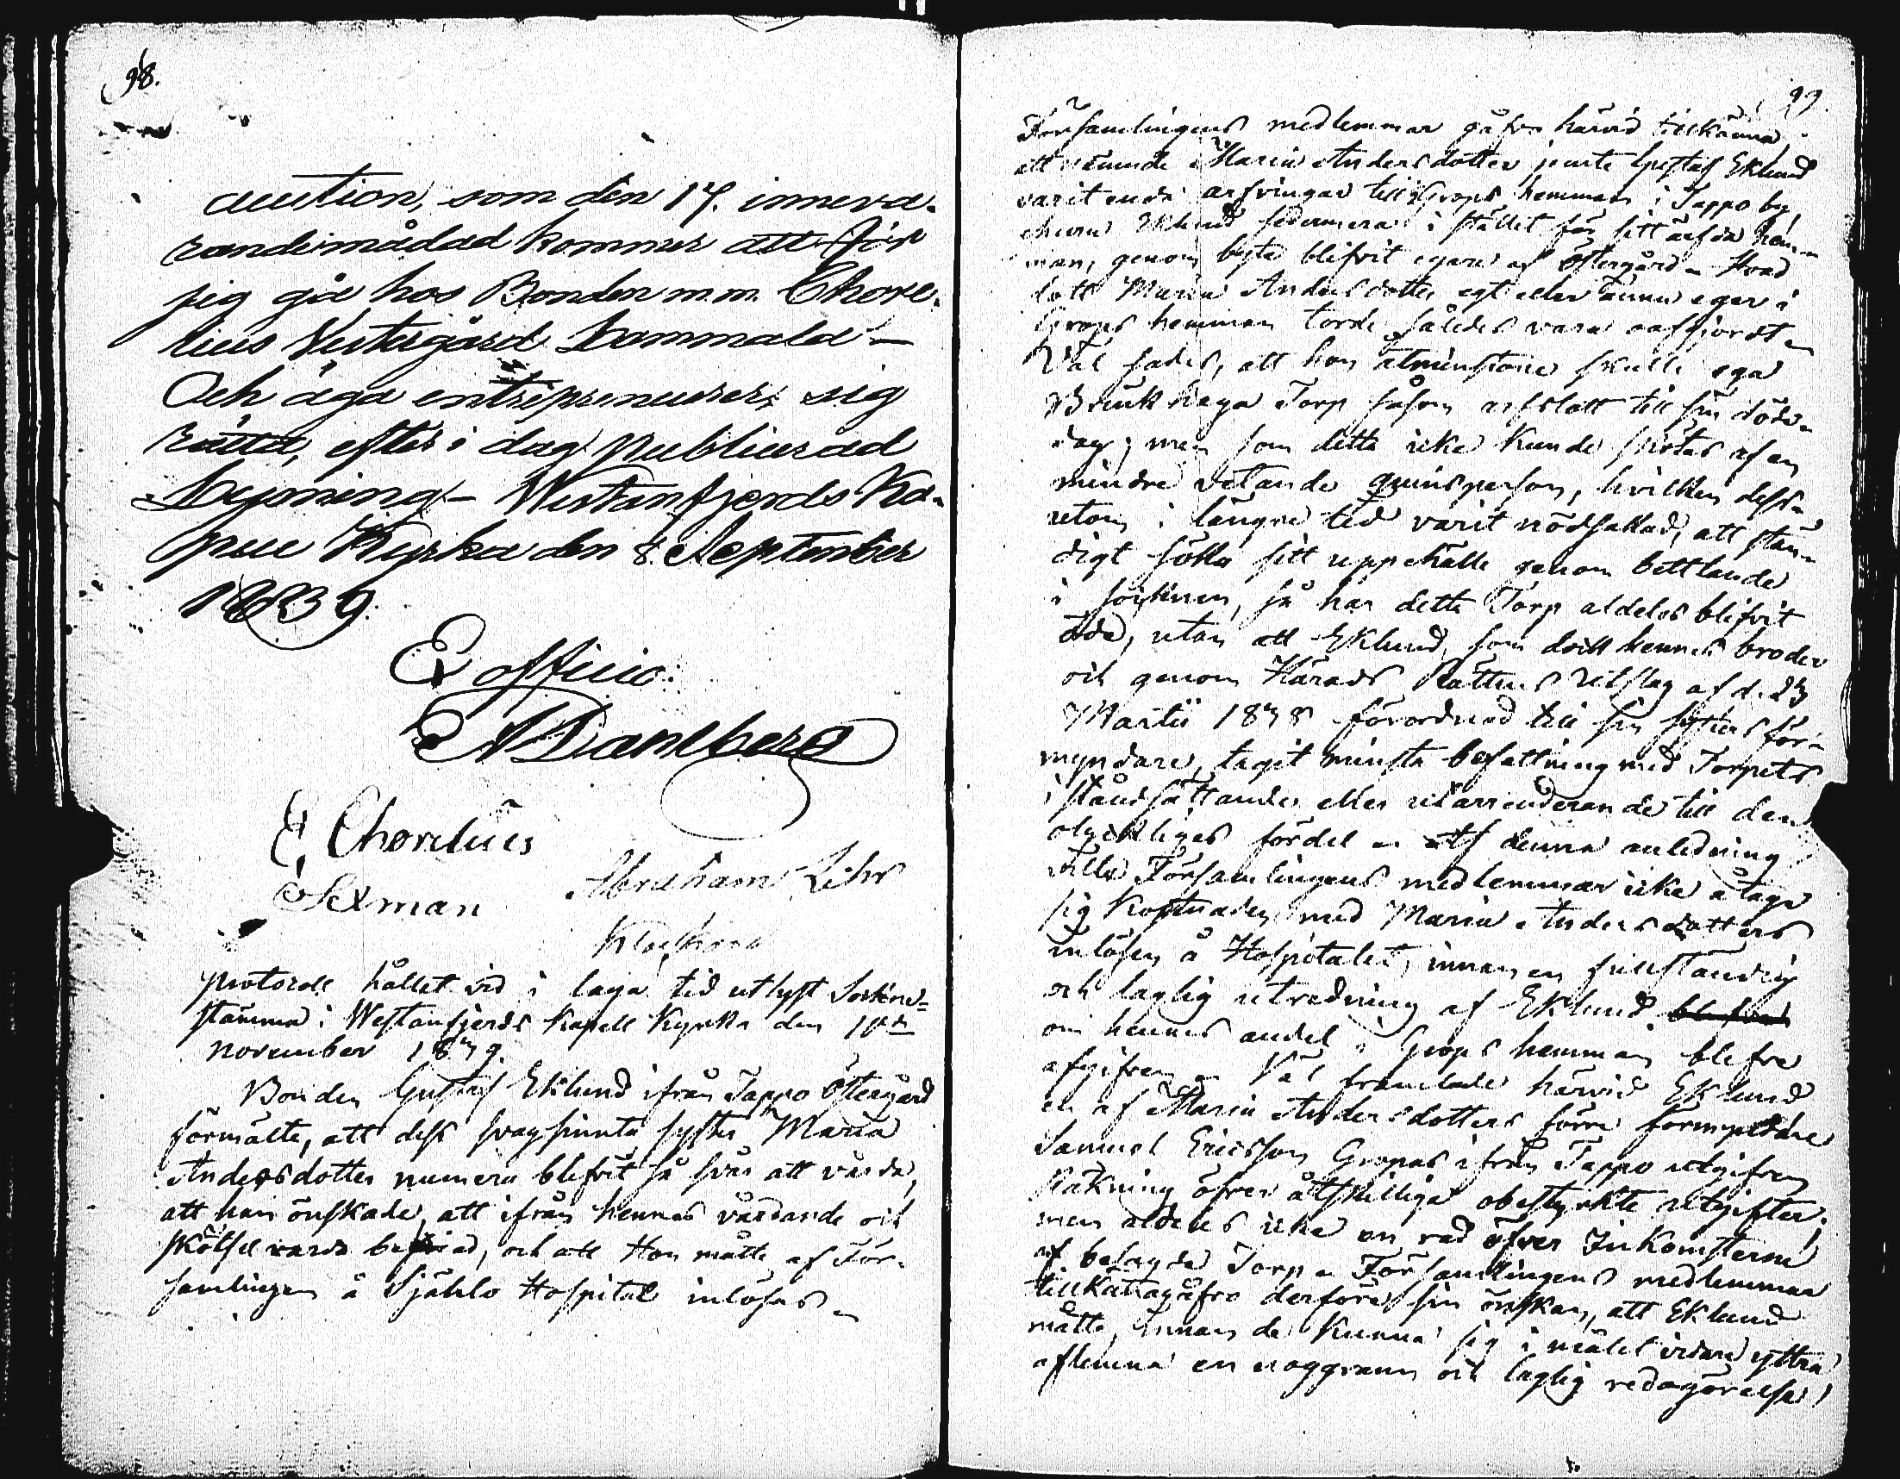 98.
auction, som den 17. inneva-
rande månad kommer att för
sig gå hos Bonden m.m. Chore-
lius Vestergård Lammala –
Och äga entrepreneurer sig
rätta, efter i dag publicerad
Lysning – Westanfjerds Ka-
pell Kyrka den 8. September
1839.
Ex officio:
E A Danlberg
E Chorelius
Sexman
Abraham Lihr
Klockare
Protocoll hållet vid i laga tid utlyst Sockne-
stämma i Westanfjerds Kapell Kyrka den 10de
november 1839.
Bonden Gustaf Eklund ifrån Tappo Östergård
förmälte, att dess svagsinnta syster Maria
Andersdotter numera blifvit så svår att vårda,
att han önskade, att ifrån hennes vårdande och
skötsel varda befriad, och att Hon måtte af För-
samlingen å Sjählo Hospital inlösas –
99.
Församlingens medlemmar gåfvo härvid tillkänna
att nämnde Maria Andersdotter jemte Gustaf Eklund
varit enda arfvingar till Grops hemman i Tappo by,
ehuru Eklund sedermera i stället för sitt ärfda hem-
man, genom byte blifvit egare af Östergård – Hvad
lott Maria Andersdotter egt eller ännu eger i
Grops hemman torde således vara oafgjordt –
Väl sades, att hon åtminstone skulle ega
Brinkhaga Torp såsom arfslott till sin döde-
dag; men som detta icke kunde skötas af en
mindre vetande qvinsperson, hvilken dess-
utom i längre tid varit nödsakad, att stän-
digt söka sitt uppehälle genom bettlande
i socknen, så har detta Torp aldeles blifvit
öde, utan att Eklund, som dock hennes broder
och genom Härads Rättens Utslag af d. 23
Martii 1838 förordnad till sin systers för-
myndare, tagit minsta befattning med Torpets
iståndsättande eller utarrenderande till den
olyckliges fördel – Af denna anledning
ville Församlingens medlemmar icke åtaga
sig kostnaden med Maria Andersdotters
inlösen å Hospitalet, innan en fullständig
och laglig utredning af Eklund
om hennes andel i Grops hemman blefve
afgifven – Väl framlade härvid Eklund
en af Maria Andersdotters förra förmyndare
Samuel Ericsson Gropas ifrån Tappo utgifven
Räkning öfver åtskilliga obestyrkte utgifter;
men aldeles icke en rad öfver Inkomsterne
af besagde Torp – Församlingens medlemmar
tillkännagåfvo derföre sin önskan, att Eklund
måtte, innan de kunna sig i målet vidare yttra
aflemna en noggrann och laglig redogörelse